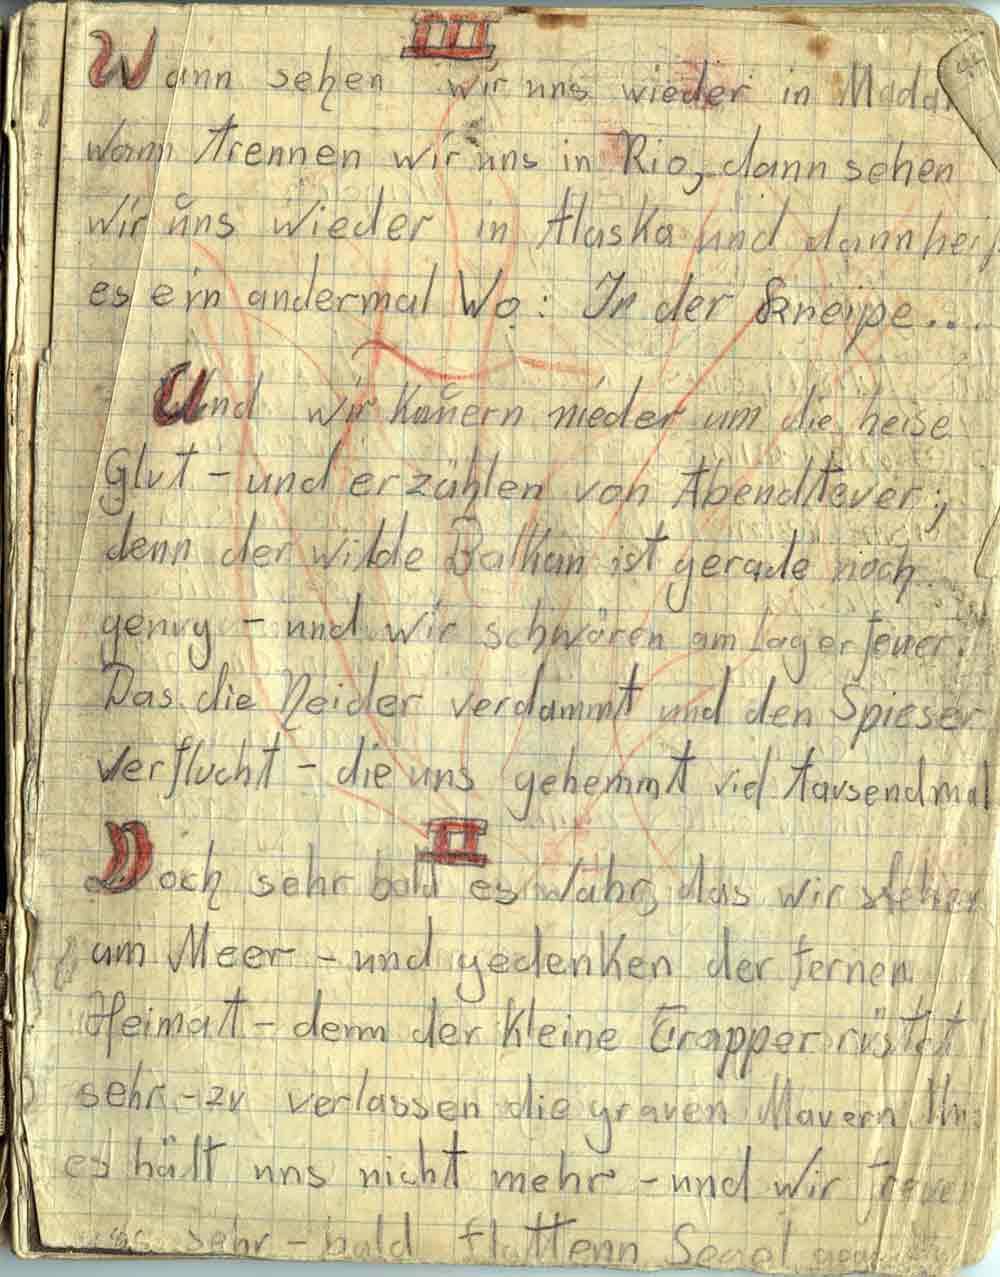 III
Wann sehen wir uns wieder in Mada
wann trennen wir uns in Rio, dann sehen
wir uns wieder in Alaska und dann hei
es ein andermal Wo: In der Kneipe...
Und wir kauern nieder um die heise
Glut - und erzählen von Abendteuer;
denn der wilde Balkan ist gerade noch
genug - und wir schwören am Lagerfeuer:
Das die Neider verdammt und den Spieser
verflucht - die uns gehemmt viel tausendmal
II
Doch sehr bald es währ, das wir stehen
am Meer - und gedenken der fernen
Heimat - denn der kleine Trapper rüstet
sehr - zu verlassen die grauen Mauern
es hält uns nicht mehr - und wir freue
uns sehr - bald flattenn Segel